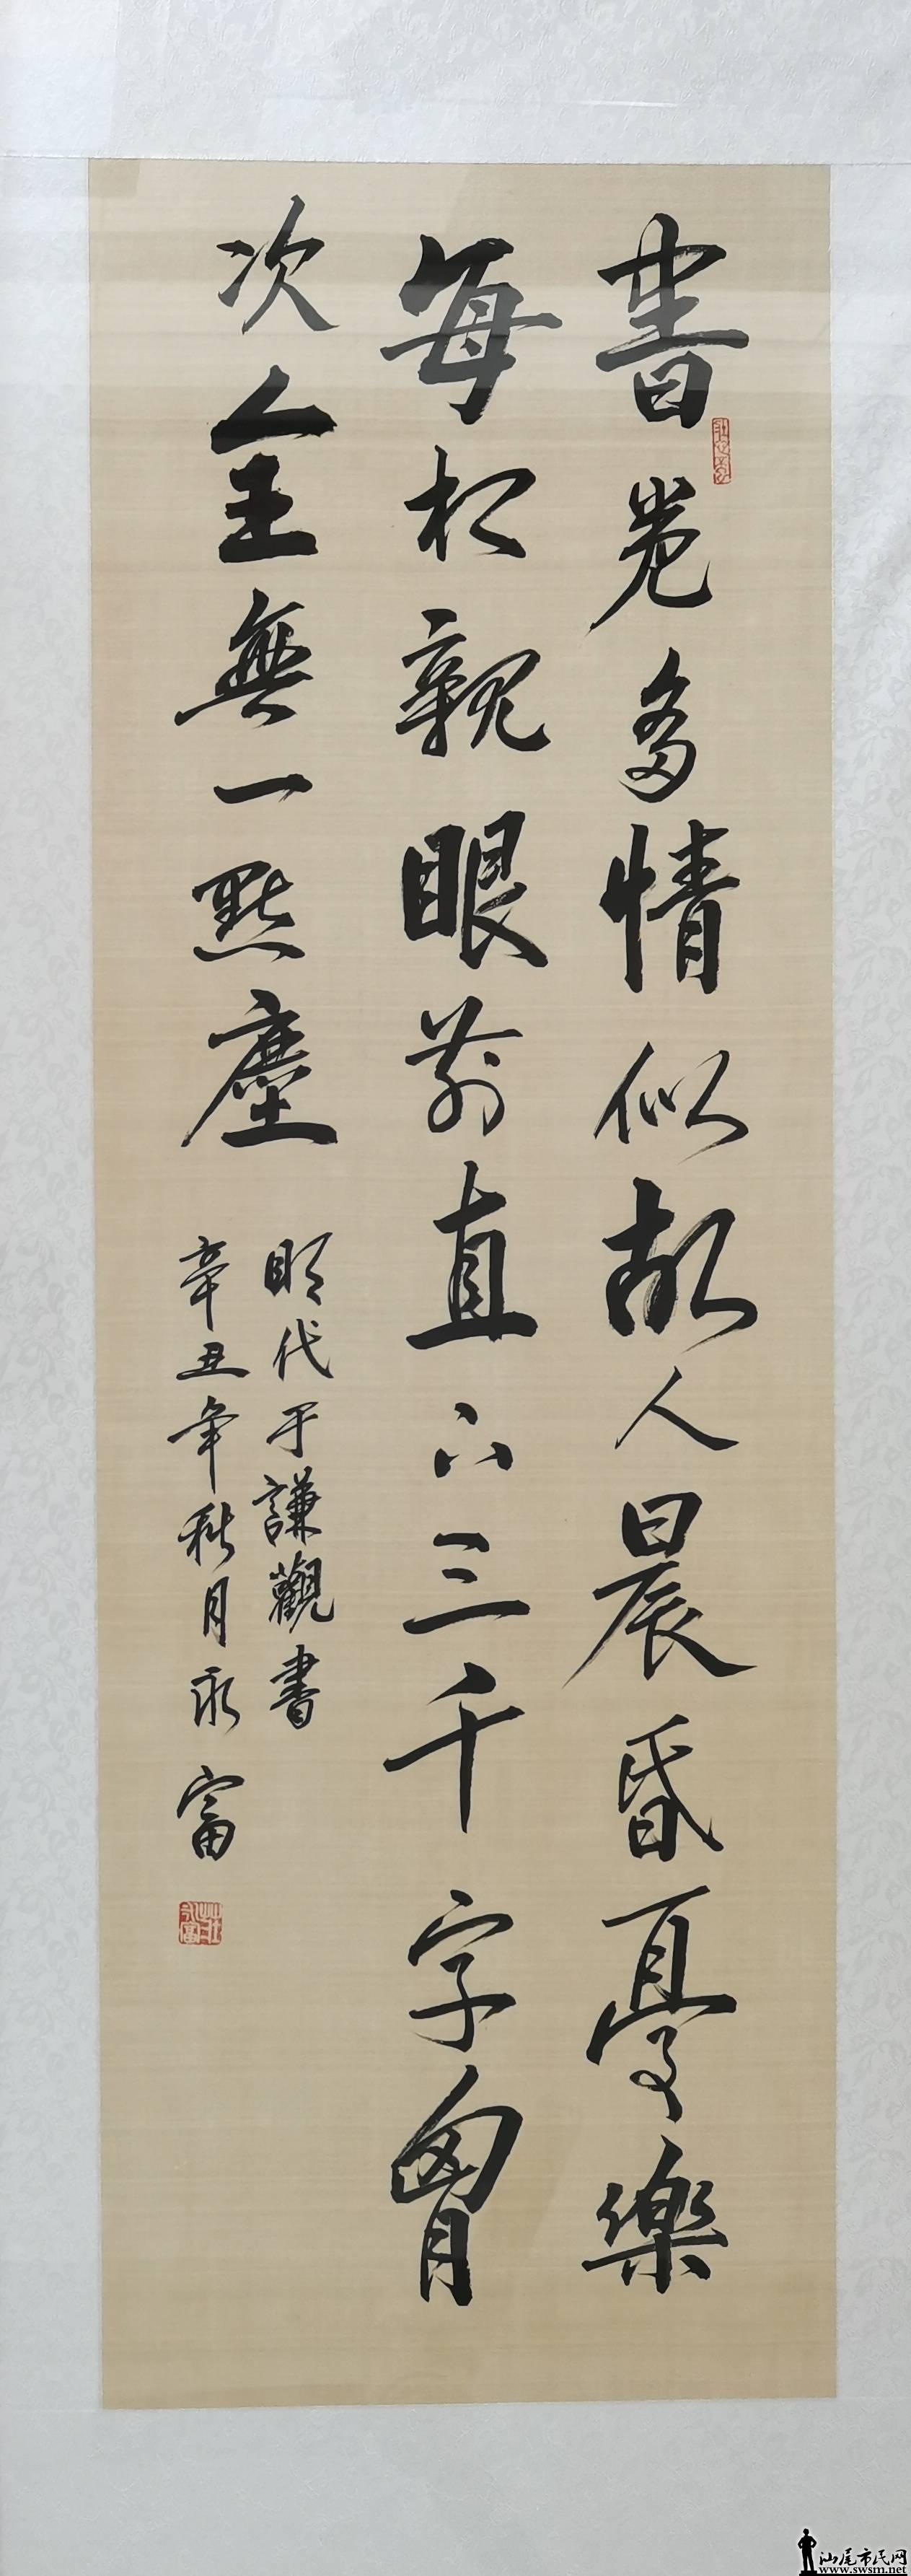 書卷多情似故人晨昏憂樂
每相親眼前直下三千字胷
次全無一點塵
明代于謙觀書
辛丑年秋月永富
莊永富
汕尾市民网
www.swsm.net